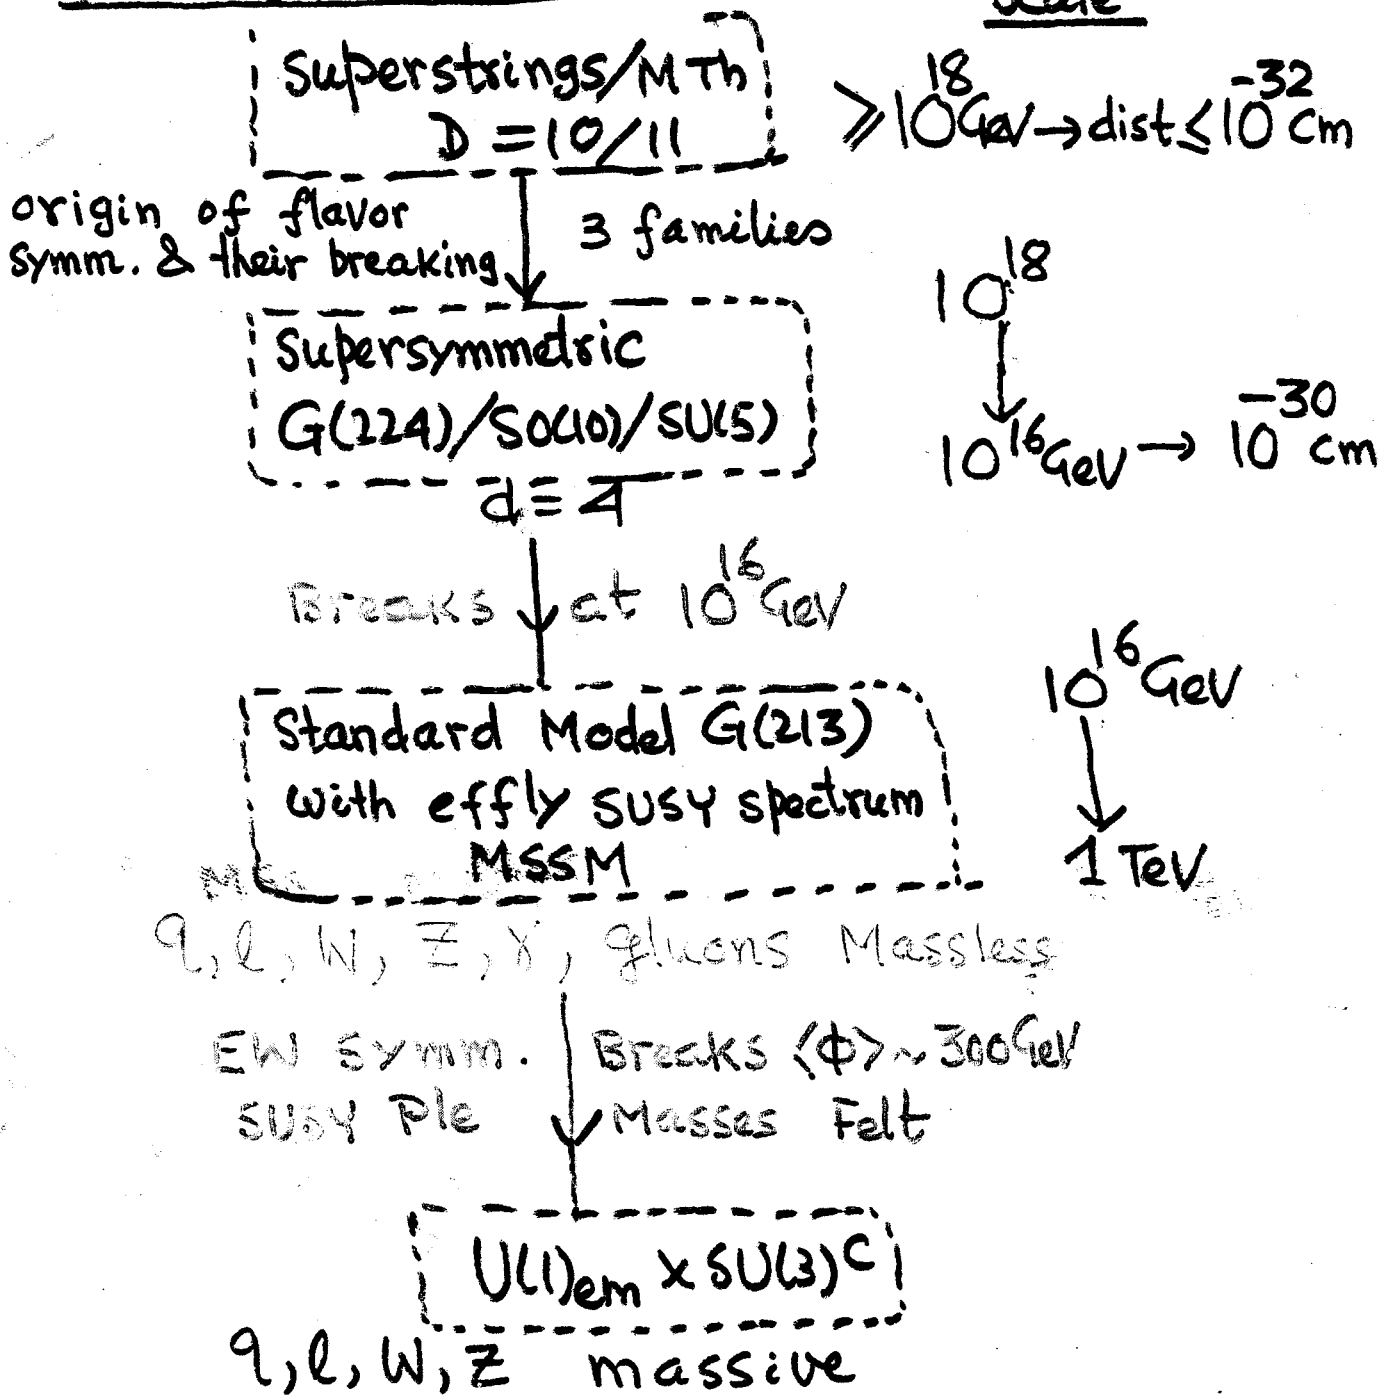 Scale
Superstrings/M Th
D = 10/11
≥ 10^18 GeV → dist ≤ 10^-32 cm
origin of flavor
symm. & their breaking
3 families
10^18
Supersymmetric
G(224)/SO(10)/SU(5)
10^16 GeV → 10^-30 cm
d = 4
Breaks at 10^16 GeV
10^16 GeV
Standard Model G(213)
with effly SUSY spectrum
MSSM
1 TeV
q, l, W, Z, γ, gluons Massless
EW Symm. Breaks <Φ> ~ 300 GeV
SUSY Ple Masses Felt
U(1)em x SU(3)^C
q, l, W, Z massive